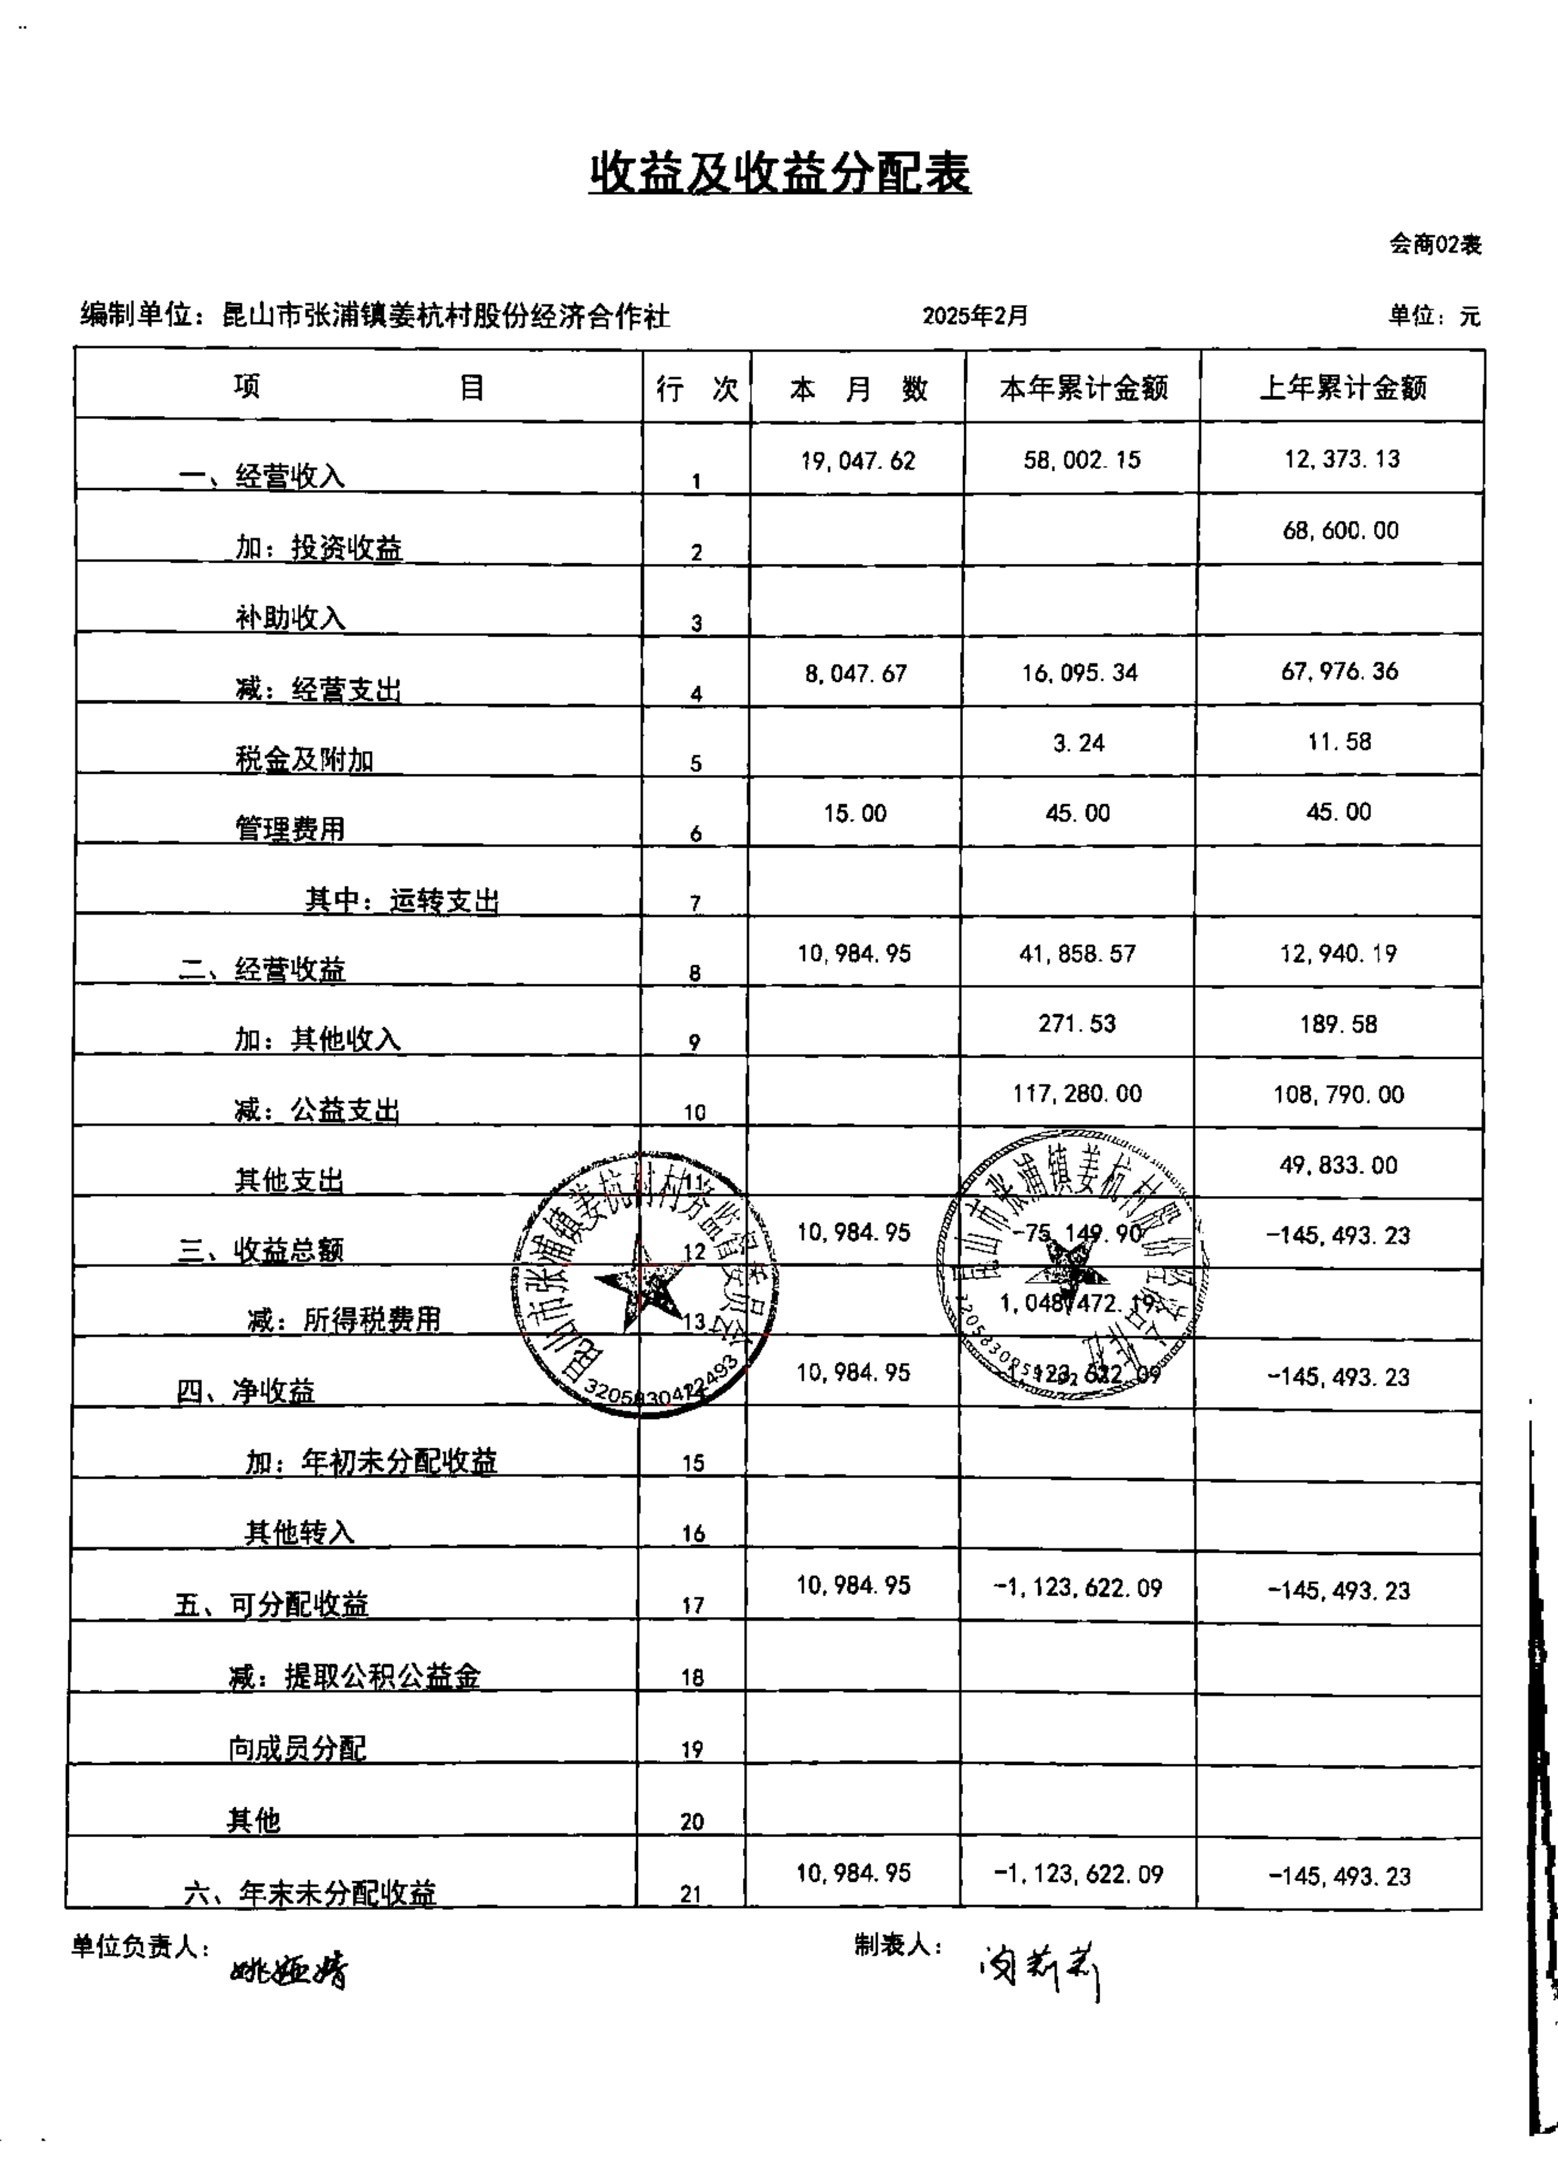 收益及收益分配表
会商02表
编制单位：昆山市张浦镇姜杭村股份经济合作社 2025年2月 单位：元
项 目 行 次 本 月 数 本年累计金额 上年累计金额
一、经营收入 1 19,047.62 58,002.15 12,373.13
加：投资收益 2 68,600.00
补助收入 3
减：经营支出 4 8,047.67 16,095.34 67,976.36
税金及附加 5 3.24 11.58
管理费用 6 15.00 45.00 45.00
其中：运转支出 7
二、经营收益 8 10,984.95 41,858.57 12,940.19
加：其他收入 9 271.53 189.58
减：公益支出 10 117,280.00 108,790.00
其他支出 11 49,833.00
三、收益总额 12 10,984.95 -75,149.90 -145,493.23
减：所得税费用 13 1,048,472.19
四、净收益 14 10,984.95 123,622.09 -145,493.23
加：年初未分配收益 15
其他转入 16
五、可分配收益 17 10,984.95 -1,123,622.09 -145,493.23
减：提取公积公益金 18
向成员分配 19
其他 20
六、年末未分配收益 21 10,984.95 -1,123,622.09 -145,493.23
昆山市张浦镇姜杭村村务监督委员会
3205830422493
昆山市张浦镇姜杭村股份经济合作社
单位负责人： 制表人：